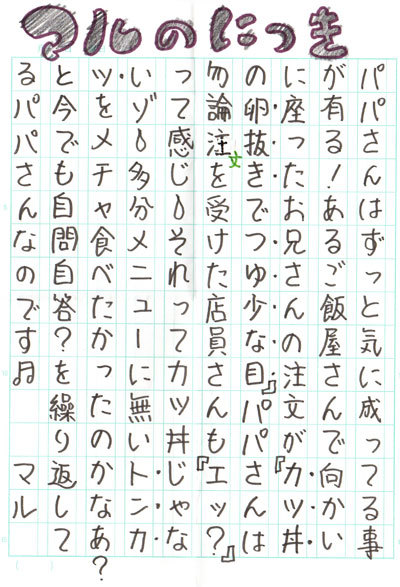 マルのにっき
パパさんはずっと気に成ってる事
が有る！あるご飯屋さんで向かい
に座ったお兄さんの注文が『カツ丼
の卵抜きでつゆ少な目』パパさんは
勿論注文を受けた店員さんも『エッ？』
って感じ！それってカツ丼じゃな
いゾ！多分メニューに無いトンカ
ツをメチャ食べたかったのかなあ？
と今でも自問自答？を繰り返して
るパパさんなのです♫　マル